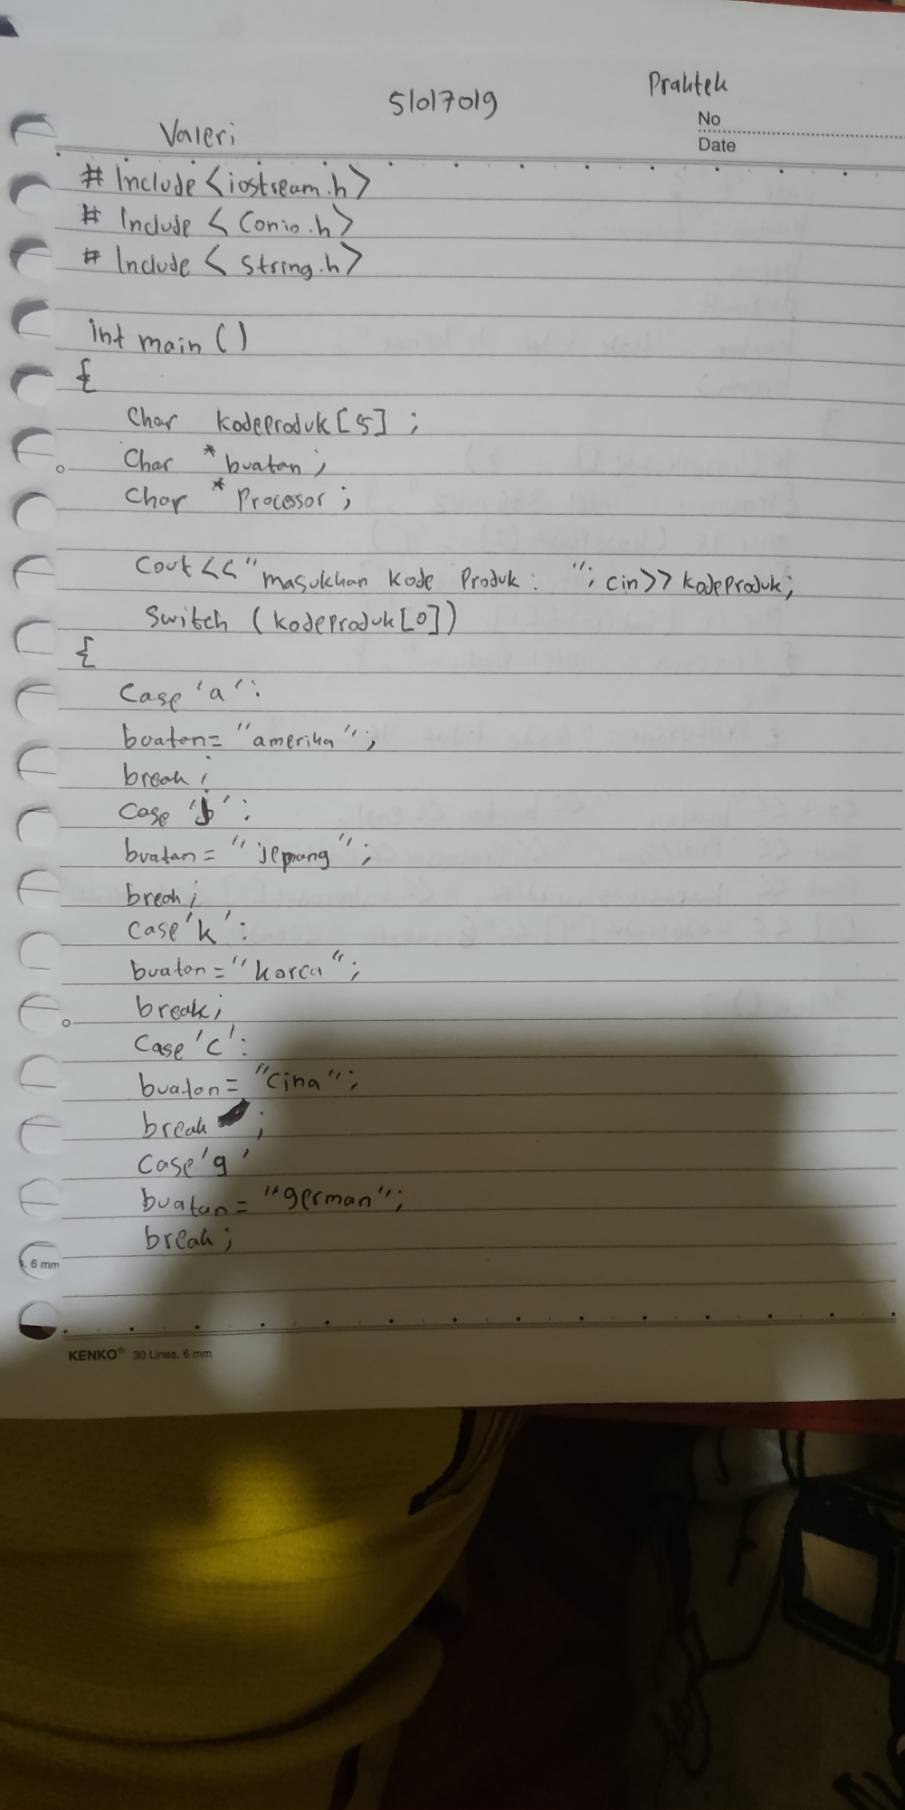 Praktek
51017019
No
Valeri
Date
# Include <iostream.h>
# Include < Conio.h>
# Include < String.h>
int main ()
{
Char kodeproduk [5] ;
Char * buatan ;
Char * Processor ;
Cout << "masukkan Kode Produk : "; cin >> kodeproduk;
Switch (kodeproduk[0])
{
Case 'a' :
buatan = "amerika" ;
break ;
Case 'j' :
buatan = "jepang" ;
break ;
Case 'k' :
buatan = "korea" ;
break ;
Case 'c' :
buatan = "Cina" ;
break ;
Case 'g'
buatan = "german" ;
break ;
6 mm
KENKO® 30 Lines, 6 mm